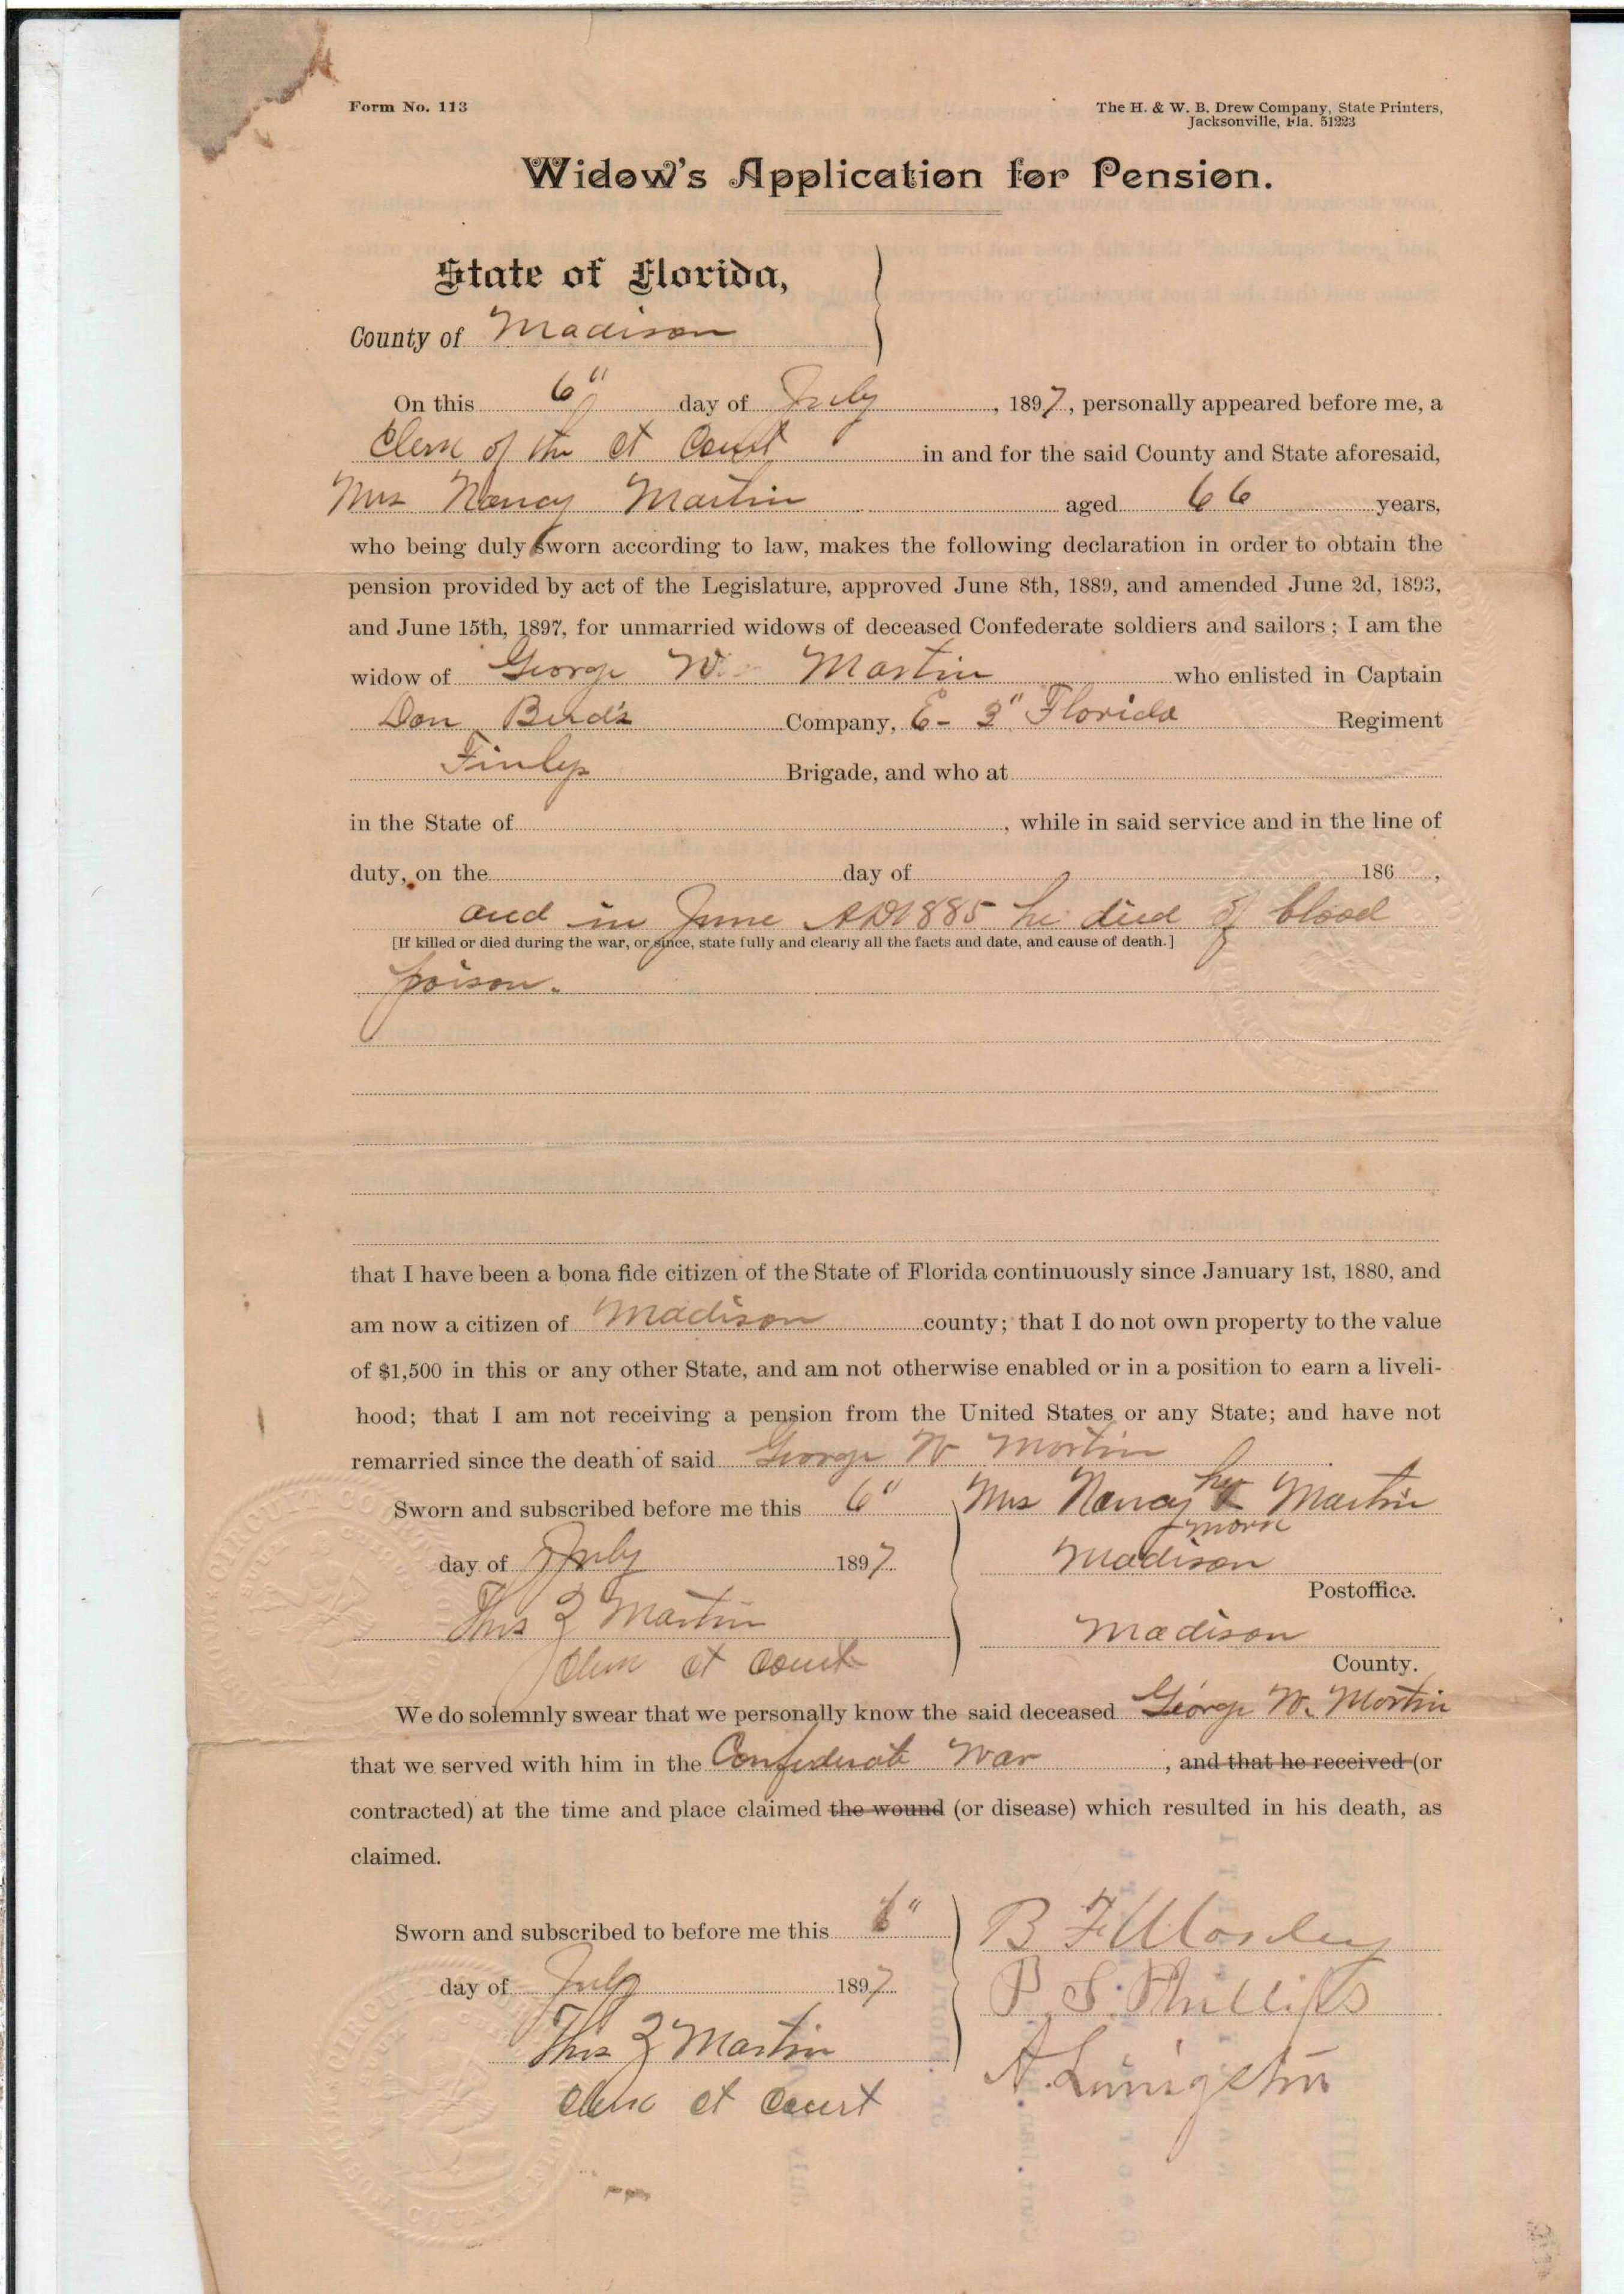 Form No. 113
The H. & W. B. Drew Company, State Printers,
Jacksonville, Fla. 51223
Widow's Application for Pension.
State of Florida,
County of Madison
On this 6" day of July, 1897, personally appeared before me, a
Clerk of the Ct Court in and for the said County and State aforesaid,
Mrs Nancy Martin aged 66 years,
who being duly sworn according to law, makes the following declaration in order to obtain the
pension provided by act of the Legislature, approved June 8th, 1889, and amended June 2d, 1893,
and June 15th, 1897, for unmarried widows of deceased Confederate soldiers and sailors; I am the
widow of George W. Martin who enlisted in Captain
Dan Birds Company, E - 3" Florida Regiment
Finleys Brigade, and who at
in the State of , while in said service and in the line of
duty, on the day of 186 ,
and in June AD 1885 he died of blood
[If killed or died during the war, or since, state fully and clearly all the facts and date, and cause of death.]
poison.
that I have been a bona fide citizen of the State of Florida continuously since January 1st, 1880, and
am now a citizen of Madison county; that I do not own property to the value
of $1,500 in this or any other State, and am not otherwise enabled or in a position to earn a liveli-
hood; that I am not receiving a pension from the United States or any State; and have not
remarried since the death of said George W Martin
Sworn and subscribed before me this 6" Mrs Nancy her x Martin
mark
day of July 1897 Madison
Postoffice.
Thos Z Martin Madison
Clerk Ct Court County.
We do solemnly swear that we personally know the said deceased George W. Martin
that we served with him in the Confederate War , and that he received (or
contracted) at the time and place claimed the wound (or disease) which resulted in his death, as
claimed.
Sworn and subscribed to before me this 6" B F Mosley
day of July 1897 P. S. Phillips
Thos Z Martin A. Livingston
Clerk Ct Court